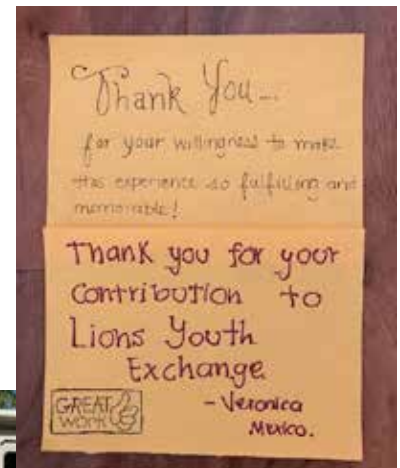 Thank You...
for your willingness to make
this experience so fulfilling and
memorable!
Thank you for your
Contribution to
Lions Youth
Exchange
- Veronica
Mexico.
GREAT
WORK